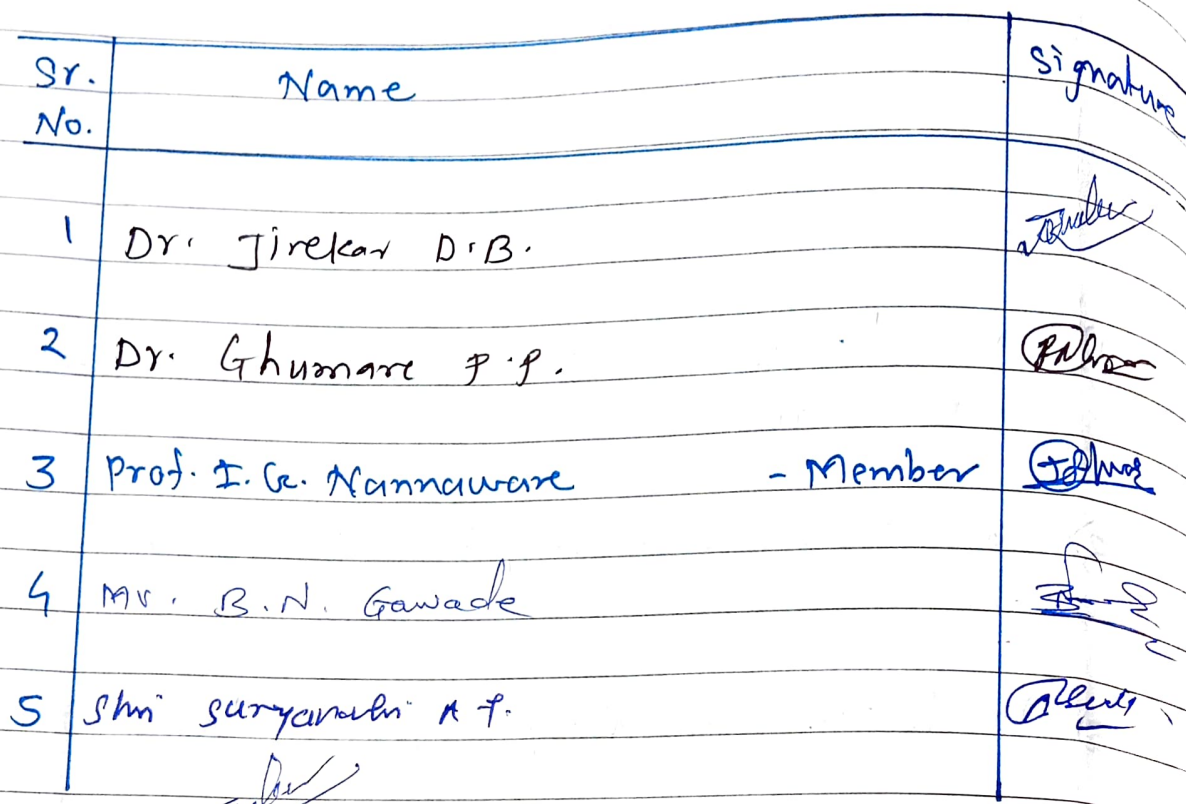 Sr. No. Name Signature
1 Dr. Jirekar D.B.
2 Dr. Ghumare P.P.
3 Prof. I. G. Nannaware - Member
4 Mr. B.N. Gawade
5 Shri A P.